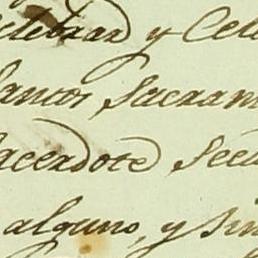 celebrar y Cele
Santos Sacram
Sacerdote Secu
alguno, y sin